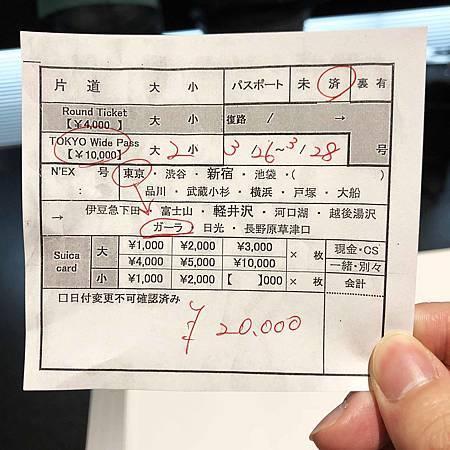 片道 大 小 パスポート 未 済 裏 有
Round Ticket
【¥4,000 】 大 小 復路 / →
TOKYO Wide Pass
【¥10,000】 大 2 小 3/26~3/28 号
N'EX 号 東京・渋谷・新宿・池袋・( )
品川・武蔵小杉・横浜・戸塚・大船
→ 伊豆急下田・富士山・軽井沢・河口湖・越後湯沢
ガーラ・日光・長野原草津口
Suica card 大 ¥1,000 ¥2,000 ¥3,000 × 枚 現金・CS
¥4,000 ¥5,000 ¥10,000 一緒・別々
小 ¥1,000 ¥2,000 【 】000 × 枚 会計
口日付変更不可確認済み
¥20,000